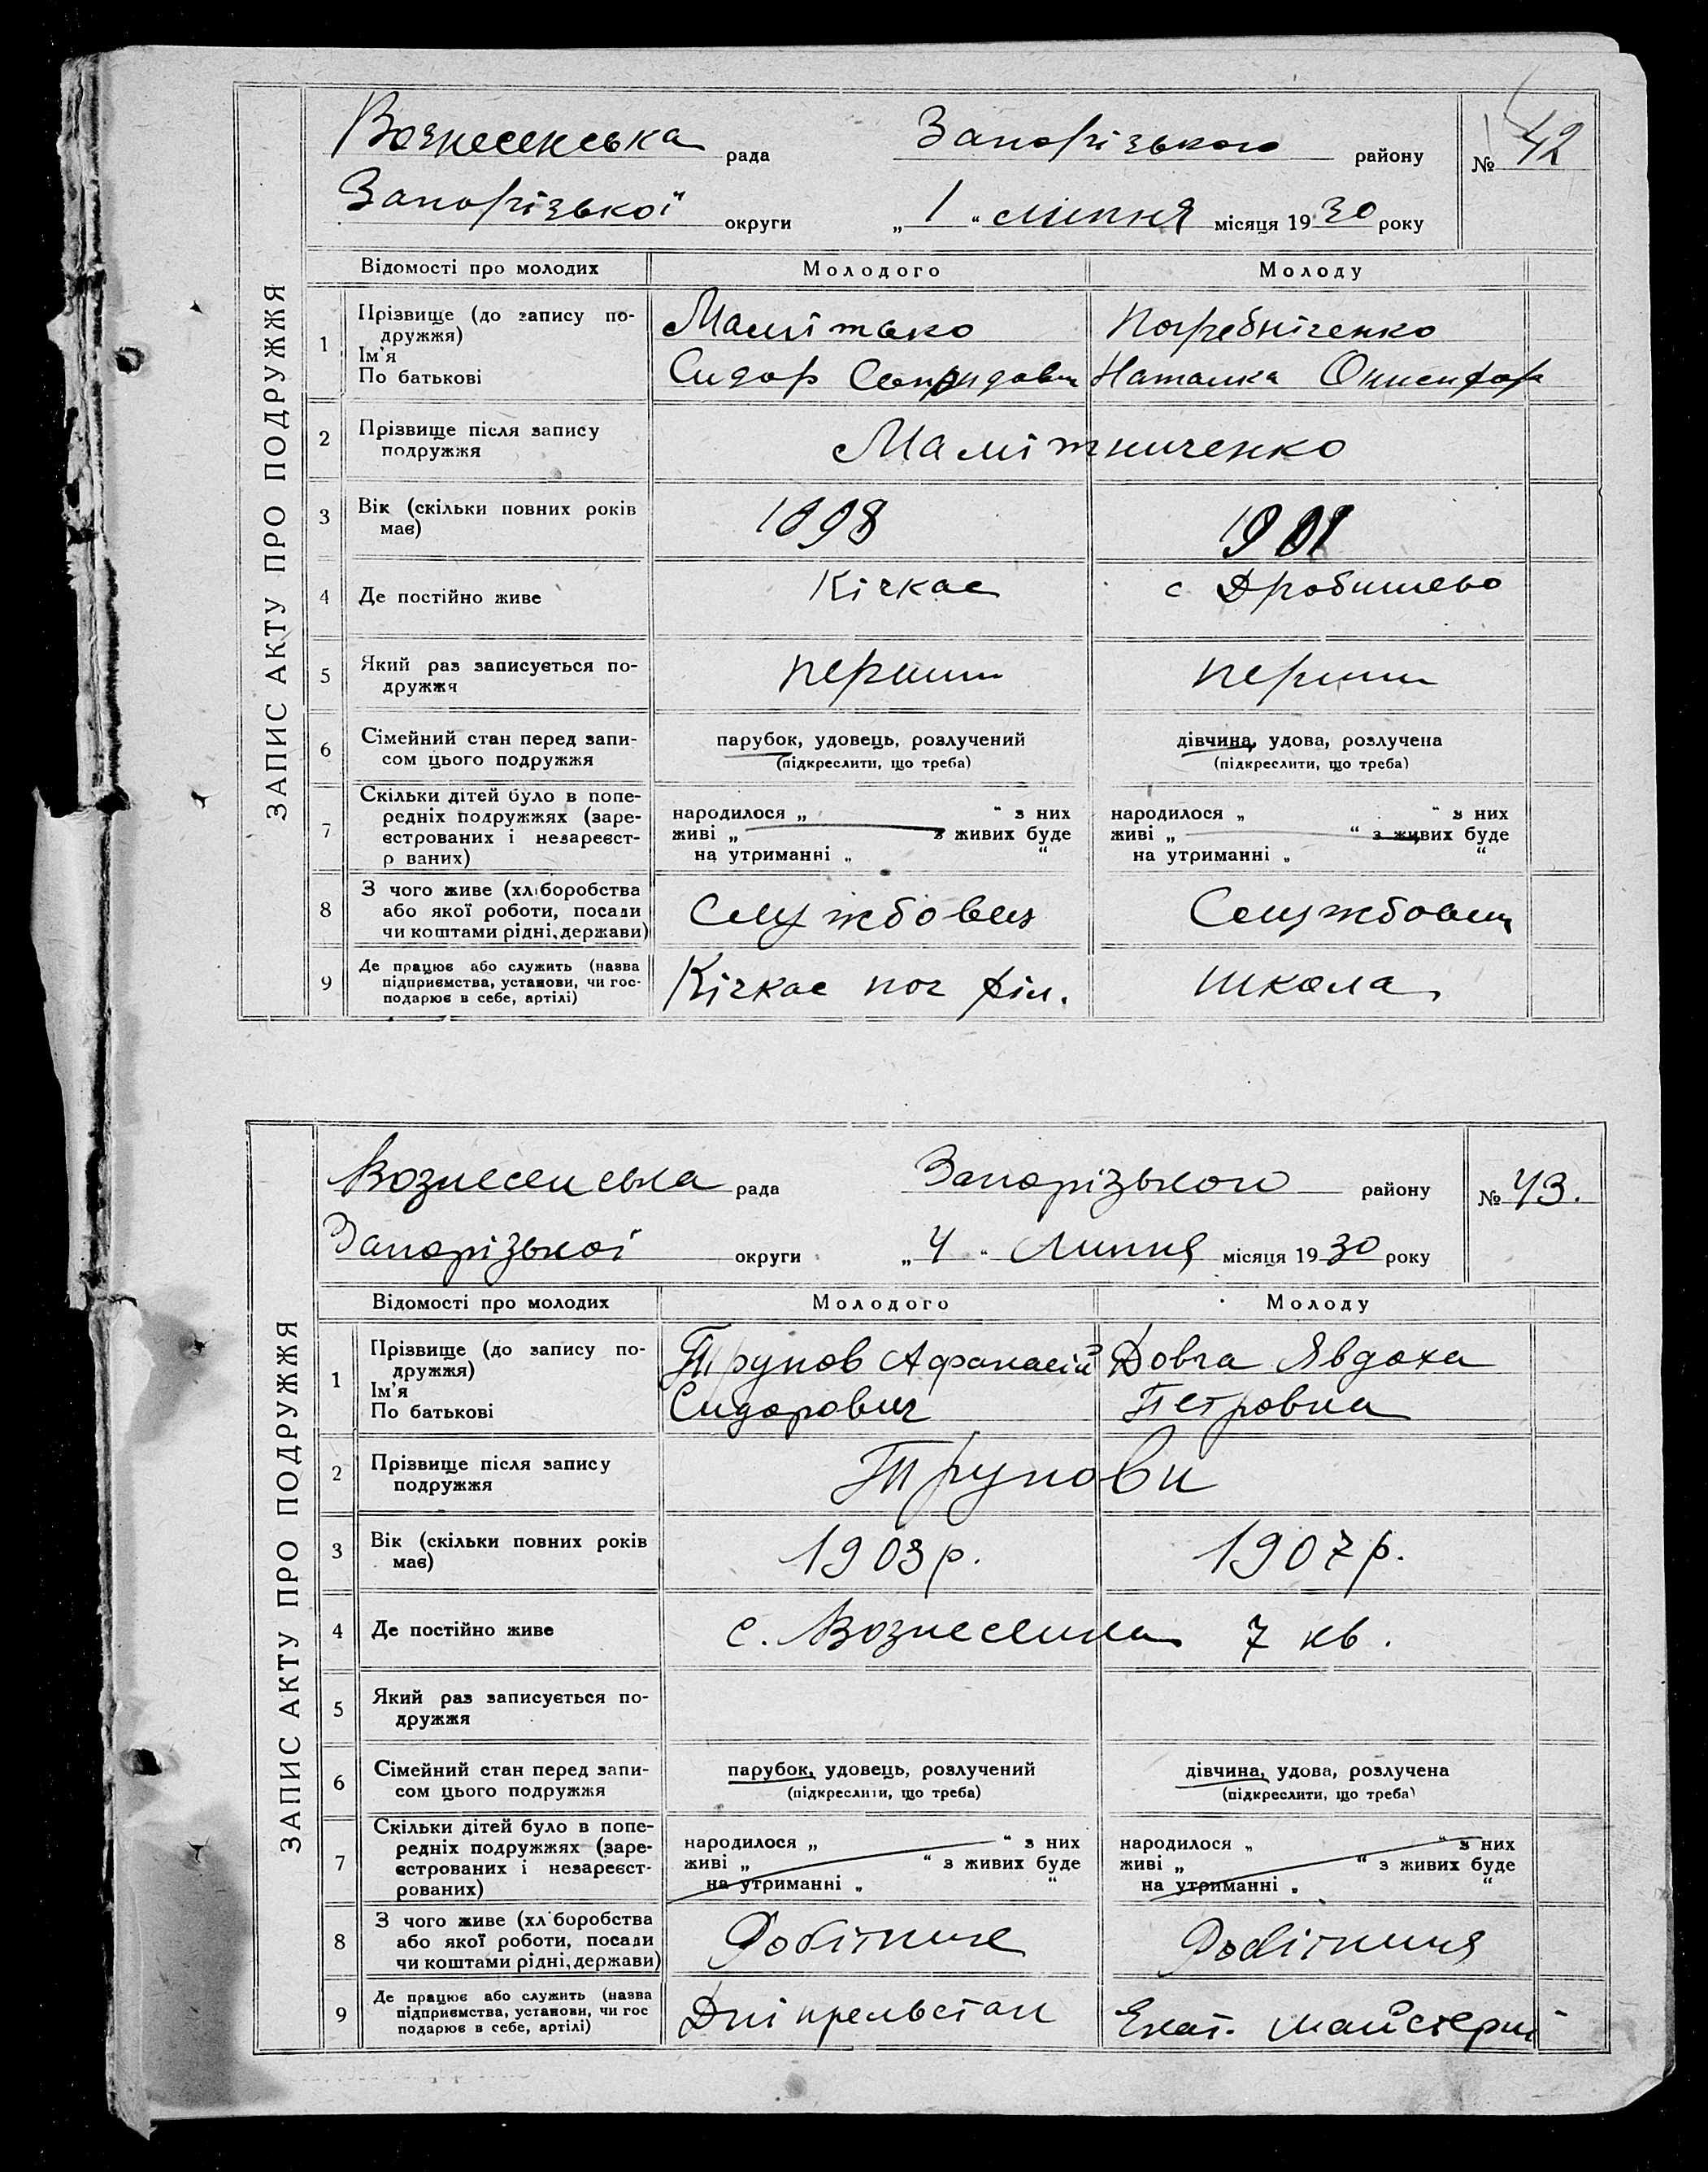 ЗАПИС АКТУ ПРО ПОДРУЖЖЯ
Вознесенська рада Запорізького району № 42
Запорізької округи „1“ липня місяця 1930 року
Відомості про молодих Молодого Молоду
1 Прізвище (до запису подружжя) Погребніченко
Ім'я
По батькові Сидор Наталка
2 Прізвище після запису подружжя
3 Вік (скільки повних років має) 1898 1901
4 Де постійно живе Кічкас с Дробишево
5 Який раз записується подружжя перший перший
6 Сімейний стан перед записом цього подружжя парубок, удовець, розлучений дівчина, удова, розлучена
(підкреслити, що треба) (підкреслити, що треба)
7 Скільки дітей було в попе-
редніх подружжях (заре- народилося „ “ з них народилося „ “ з них
єстрованих і незареєст- живі „ “ з живих буде живі „ “ з живих буде
р ваних) на утриманні „ “ на утриманні „ “
8 З чого живе (хліборобства
або якої роботи, посади Службовец Службовец
чи коштами рідні, держави)
9 Де працює або служить (назва
підприємства, установи, чи гос- Кічкас поч філ. школа
подарює в себе, артілі)
ЗАПИС АКТУ ПРО ПОДРУЖЖЯ
Вознесенська рада Запорізького району № 43.
Запорізької округи „4“ Липня місяця 1930 року
Відомості про молодих Молодого Молоду
1 Прізвище (до запису по-
дружжя) Трунов Афанасій Довга Явдоха
Ім'я
По батькові Сидорович Петровна
2 Прізвище після запису
подружжя Трунови
3 Вік (скільки повних років
має) 1903 р. 1907 р.
4 Де постійно живе с. Вознесенка 7 кв.
5 Який раз записується по-
дружжя
6 Сімейний стан перед запи- парубок, удовець, розлучений дівчина, удова, розлучена
сом цього подружжя (підкреслити, що треба) (підкреслити, що треба)
7 Скільки дітей було в попе-
редніх подружжях (заре- народилося „ “ з них народилося „ “ з них
єстрованих і незареєст- живі „ “ з живих буде живі „ “ з живих буде
рованих) на утриманні „ “ на утриманні „ “
8 З чого живе (хл боробства
або якої роботи, посади Робітниче Робітниця
чи коштами рідні, держави)
9 Де працює або служить (назва
підприємства, установи, чи гос Дніпрельстан майстерні
подарює в себе, артілі)